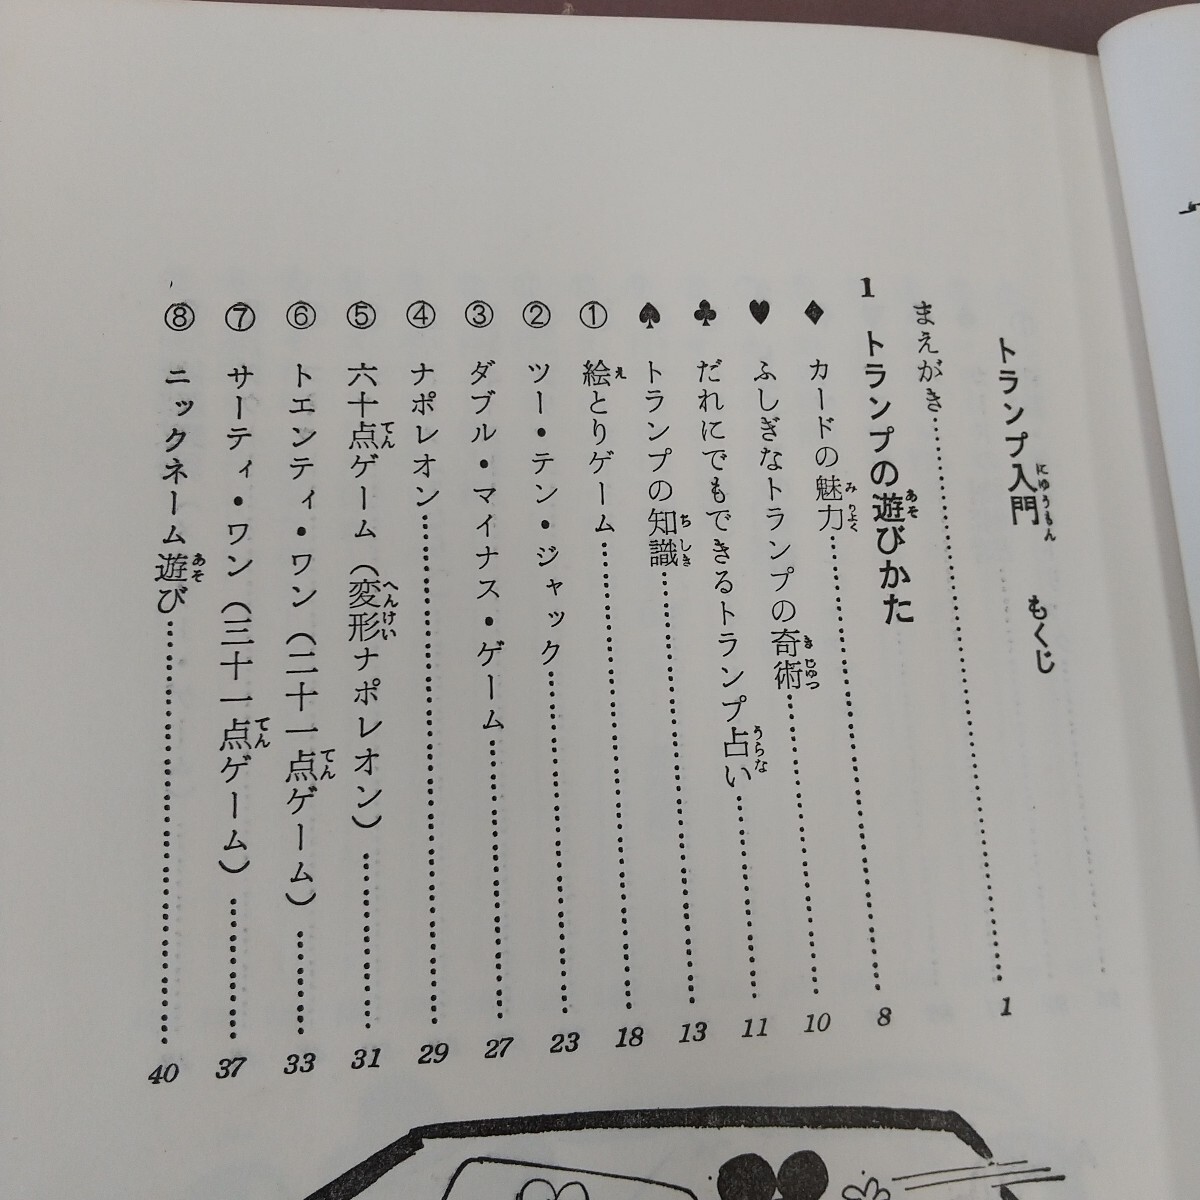 トランプ入門 もくじ
まえがき…………1
1 トランプの遊びかた
♦ カードの魅力…………8
♥ ふしぎなトランプの奇術…………10
♣ だれにでもできるトランプ占い…………11
♠ トランプの知識…………13
① 絵とりゲーム…………18
② ツー・テン・ジャック…………23
③ ダブル・マイナス・ゲーム…………27
④ ナポレオン…………29
⑤ 六十点ゲーム（変形ナポレオン）…………31
⑥ トエンティ・ワン（二十一点ゲーム）…………33
⑦ サーティ・ワン（三十一点ゲーム）…………37
⑧ ニックネーム遊び…………40